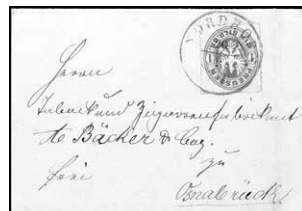 NORDH
PREUSSEN
Herrn
Taback und Zigarrenfabrikant
Bäcker & Cag.
zu
frei
Osnabrück